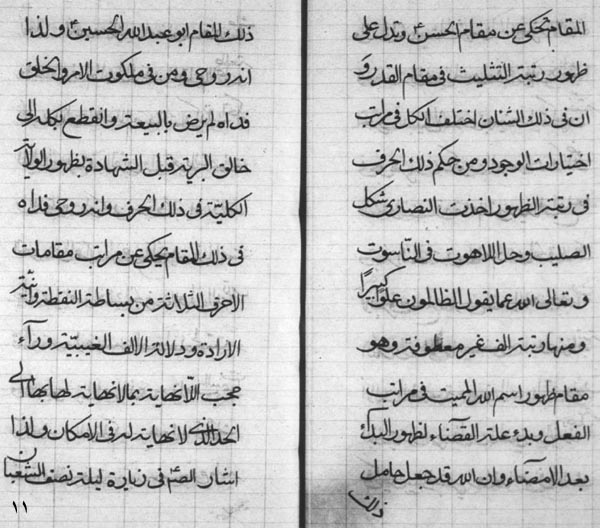 المقام تحکی عن مقام الحسن ع و تدل علی
ظهور رتبة التثلیث فی مقام القدر و
ان فی ذلک الشان اختلف الکل فی مراتب
اختیارات الوجود و من حکم ذلک الحرف
فی رتبة الظهور اخذت النصاری شکل
الصلیب و حل اللاهوت فی الناسوت
و تعالی الله عما یقول الظالمون علوا کبیرًا
و منها رتبة الف غیر معطوفة و هو
مقام ظهور اسم الله الممیت فی مراتب
الفعل و بدء علة القضاء لظهور البدآء
بعد الامضاء و ان الله قد جعل حامل
ذلک
ذلک المقام ابو عبد الله الحسین ع و لذا
انه روحی و من فی ملکوت الامر و الخلق
فداه لم یرض بالبیعة و انقطع بکله الی
خالق البریة قبل الشهادة بظهور الولایة
الکلیّة فی ذلک الحرف و انه روحی فداه
فی ذلک المقام یحکی عن مراتب مقامات
الاحرف الثلاثة من بساطة النقطة و
الارادة و دلالة الالف الغیبیّة ورآء
حجب اللانهایة بما لانهایة لها بها الی
الحد الذی لا نهایة له فی الامکان و لذا
اشار الص ع فی زیارة لیلة نصف الشعبان
۱۱